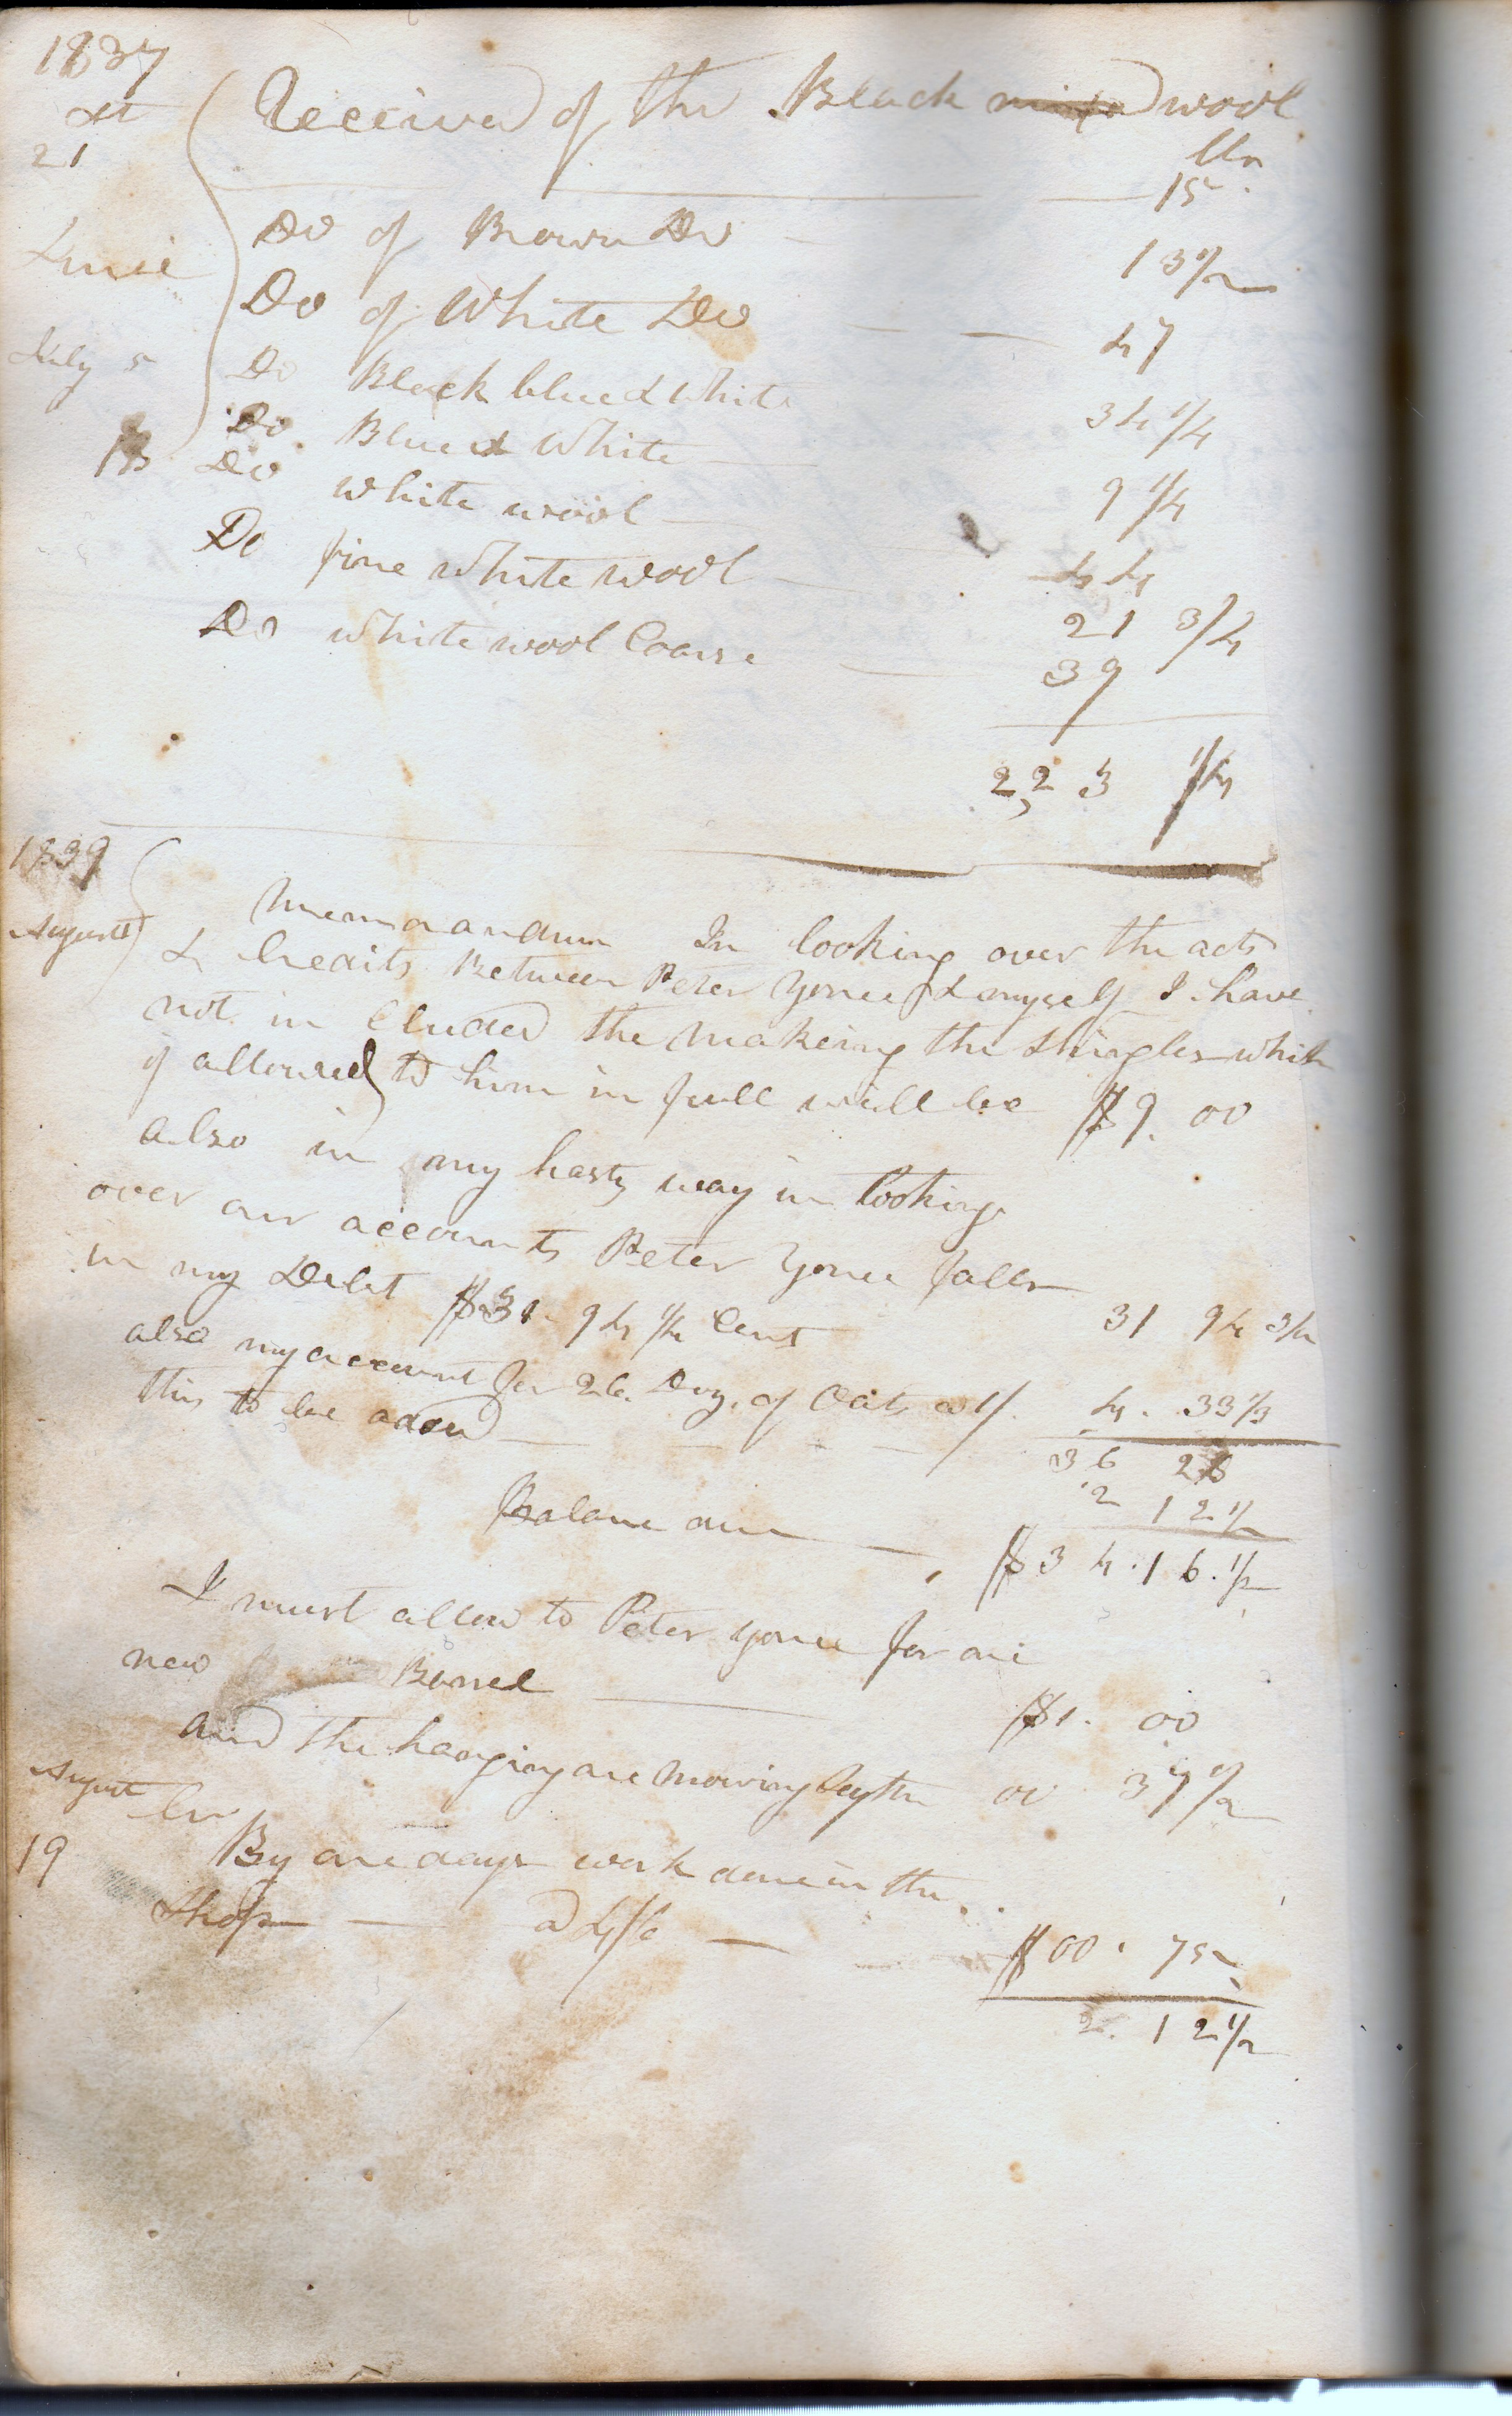 1837
21
Received of the Black mixed wool
lbs
15
Do of Brown Do 13 1/2
June
Do of White Do 47
July 5 Do Black blue & White 34 1/4
Do Blue & White 9 1/4
13 Do white wool 44
Do fine white wool 21 3/4
Do white wool Coarse 39
223 1/4
1839
August
Memoarandum In looking over the acts
& Credits Between Peter Yonce & myself I have
not in Cluded the makeing the Shingles which
if allowed to him in full will be $9.00
also in my hasty way in looking
over our accounts Peter Yonce falls
in my Debt $31.94 3/4 Cents 31 94 3/4
also my account for 26 Doz. of Oats a 1/. 4.33 1/3
this to be aded
36 28
2 12 1/2
Balance due $34.16.1/2
I must allow to Peter Yonce for one
new Barrel $1.00
and the hanging one mowing Scythe 00 37 1/2
August Cr
19 By one days work done in the
Shop a 4/6 $00.75
2.12 1/2